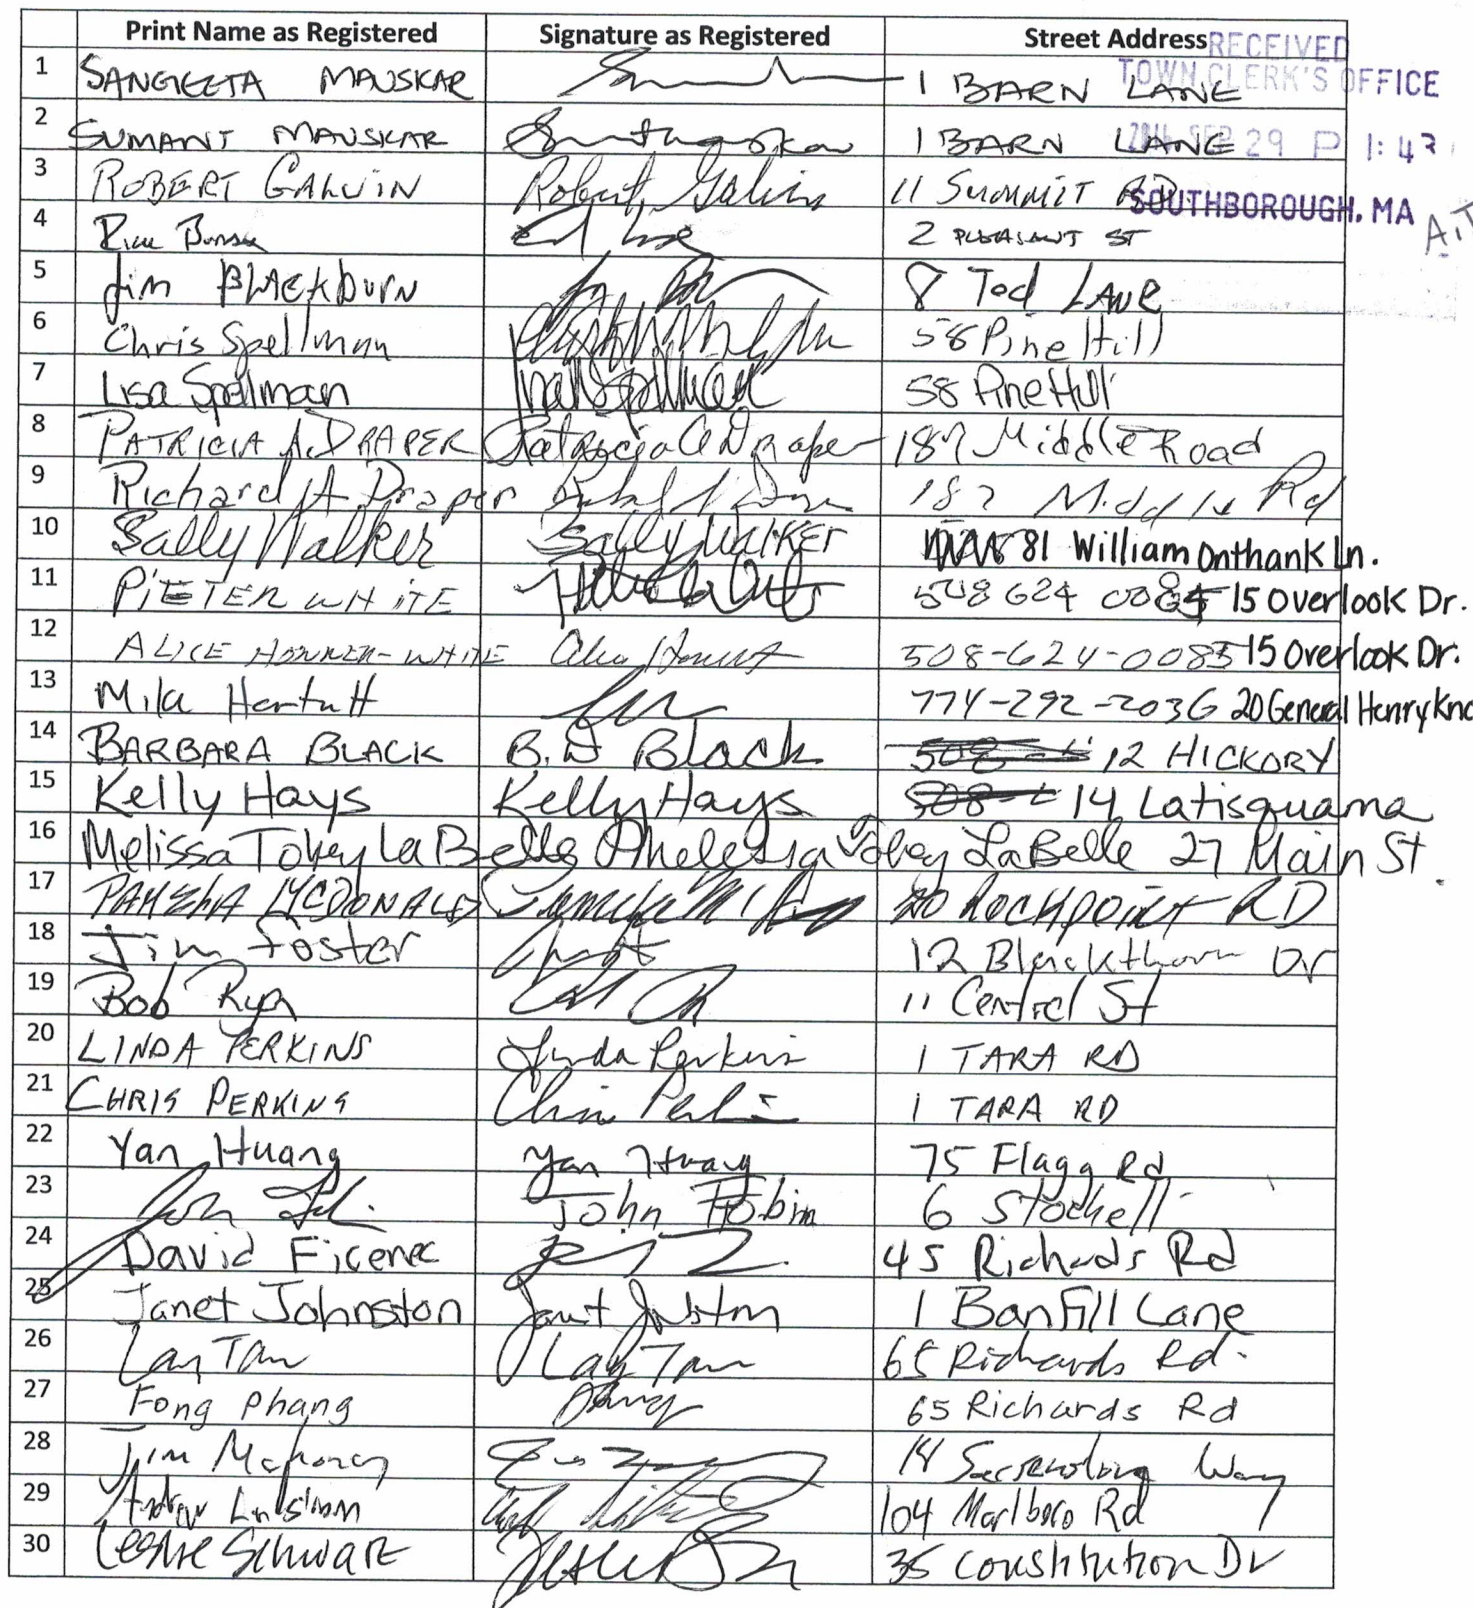 Print Name as Registered Signature as Registered Street Address RECEIVED
TOWN CLERK'S OFFICE
1 SANGEETA MAUSKAR 1 BARN LANE
2 SUMANT MAUSKAR 1 BARN LANE
SEP 29 P 1:43
3 ROBERT GALVIN Robert Galvin 11 SUMMIT RD
SOUTHBOROUGH, MA
4 2 PLEASANT ST
5 Jim BLACKBURN 8 Ted LANE
6 Chris Spellman 58 Pine Hill
7 Lisa Spellman 58 Pine Hill
8 PATRICIA A. DRAPER Patricia A Draper 187 Middle Road
9 Richard A Draper 187 Middle Rd
10 Sally Walker Sally WALKER 81 William Onthank Ln.
11 PIETER WHITE 508 624 0085 15 Overlook Dr.
12 ALICE HONNER-WHITE 508-624-0085 15 Overlook Dr.
13 774-292-2036 20 General Henry Kno
14 BARBARA BLACK B.D Black 12 HICKORY
15 Kelly Hays Kelly Hays 508- 14 Latisquama
16 Melissa Tobey LaBelle Melissa Tobey LaBelle 27 Main St.
17 PAMELA MCDONALD 20 ROCKPOINT RD
18 Jim Foster 12 Blackthorn Dr
19 Bob Ryan 11 Central St
20 LINDA PERKINS Linda Perkins 1 TARA RD
21 CHRIS PERKINS Chris Perkins 1 TARA RD
22 Yan Huang Yan Huang 75 Flagg Rd
23 John 6 Stockwell
24 David Ficenec 45 Richards Rd
25 Janet Johnston Janet Johnston 1 Banfill Lane
26 Lay Tan Lay Tan 65 Richards Rd.
27 Fong Phang 65 Richards Rd
28 Jim Mahoney 14 Way
29 104 Marlboro Rd
30 Leslie Schwarz 35 Constitution Dr